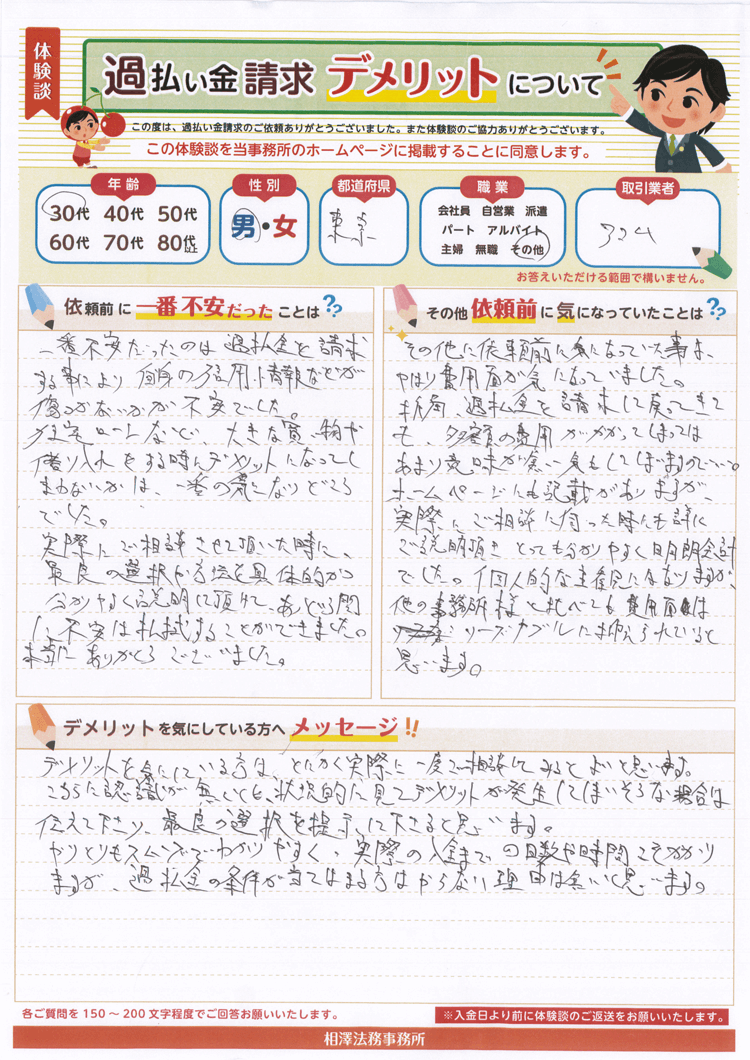 体験談
過払い金請求 デメリットについて
この度は、過払い金請求のご依頼ありがとうございました。また体験談のご協力ありがとうございます。
この体験談を当事務所のホームページに掲載することに同意します。
年齢
30代 40代 50代
60代 70代 80代以上
性別
男・女
都道府県
東京
職業
会社員 自営業 派遣
パート アルバイト
主婦 無職 その他
取引業者
アコム
お答えいただける範囲で構いません。
依頼前に一番不安だったことは??
一番不安だったのは過払金を請求
する事により自身の信用情報などが
傷つかないかが不安でした。
住宅ローンなど、大きな買い物や
借り入れをする時にデメリットになってし
まわないかは、一番の気になりどころ
でした。
実際にご相談させて頂いた時に、
最良の選択や方法を具体的かつ
分かりやすく説明して頂けて、あっという間
に、不安は払拭することができました。
本当にありがとうございました。
その他依頼前に気になっていたことは??
その他に依頼前に気になっていた事は、
やはり費用面が気になっていました。
結局、過払金を請求して戻ってきて
も、多額の費用がかかってしまっては
あまり意味が無い気もしてしまいますので…。
ホームページにも記載がありますが、
実際にご相談に伺った時にも詳に
ご説明頂きとっても分かりやすく明朗会計
でした。個人的な主観にはなりますが、
他の事務所様と比べても費用面は
リーズナブルに抑えられていると
思います。
デメリットを気にしている方へメッセージ!!
デメリットを気にしている方は、とにかく実際に一度ご相談してみるとよいと思います。
こちらに認識が無いとも、状況的に見てデメリットが発生してしまいそうな場合は
伝えて下さり、最良の選択を提示して下さると思います。
やりとりもスムーズでわかりやすく、実際の入金までの日数や時間こそかかり
ますが、過払金の条件が当てはまる方はやらない理由は無いと思います。
各ご質問を150～200文字程度でご回答お願いいたします。
※入金日より前に体験談のご返送をお願いいたします。
相澤法務事務所